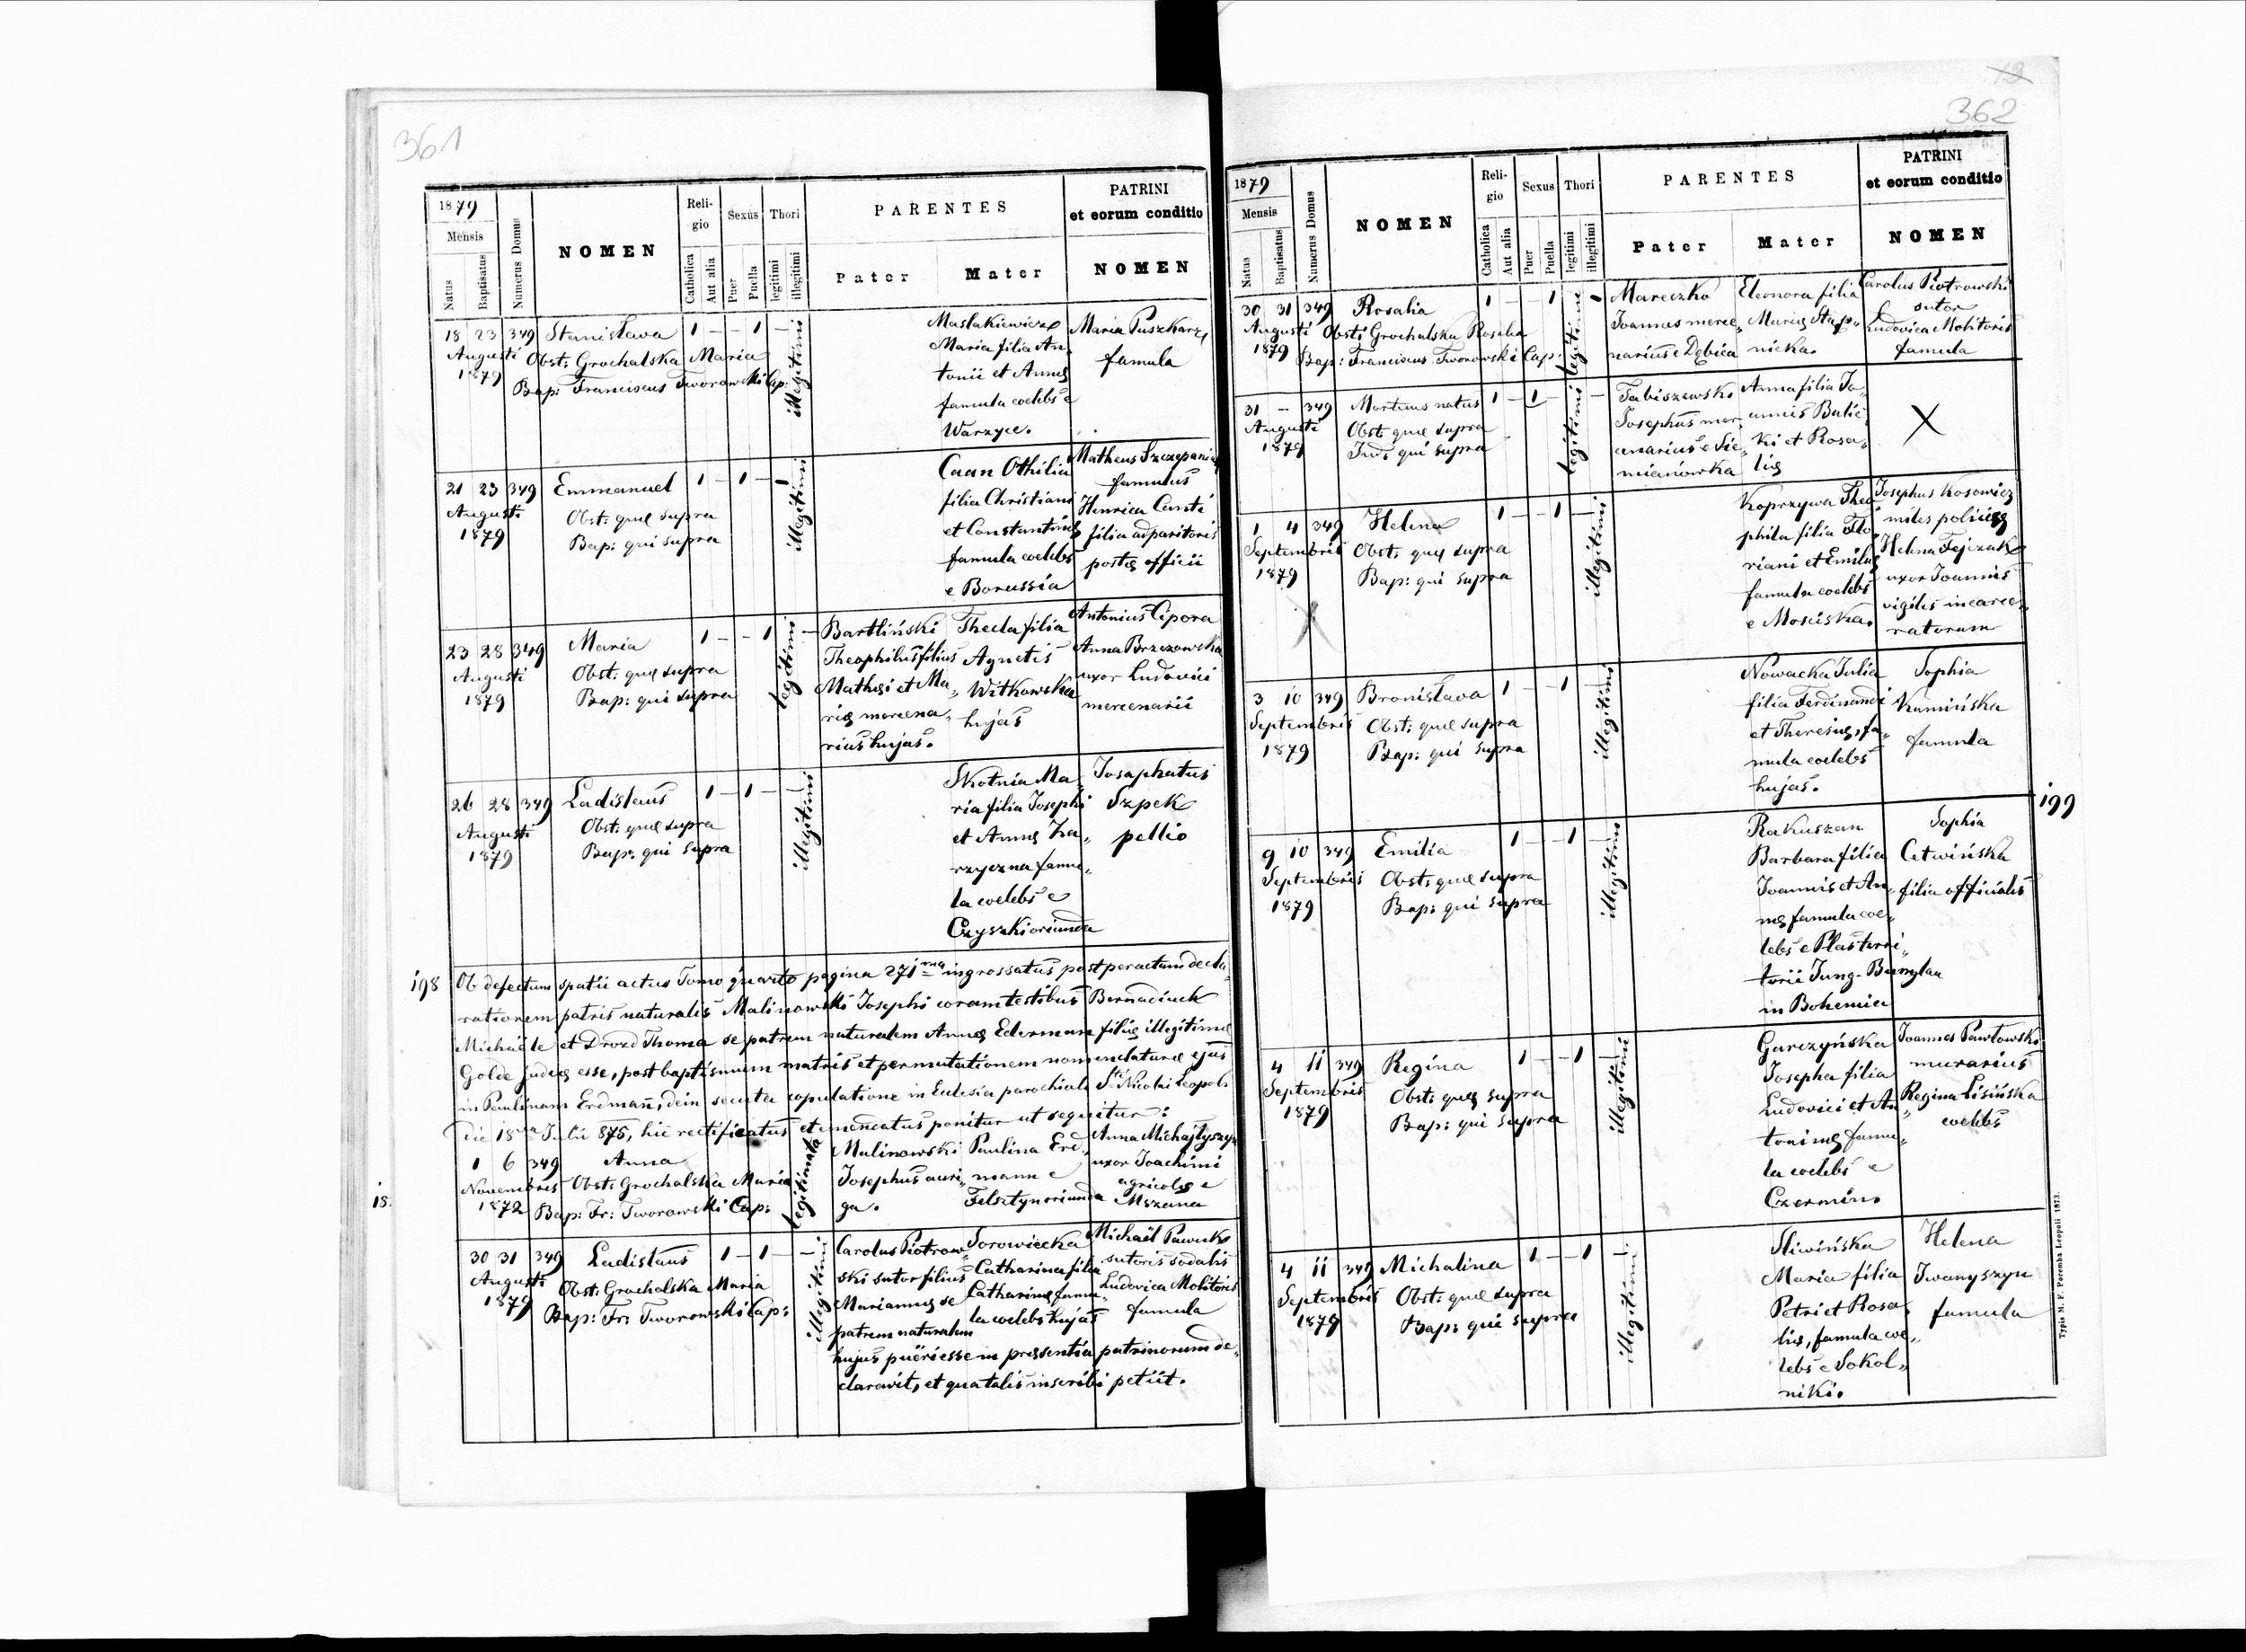 361
1879
Mensis
Natus
Baptisatus
Numerus Domus
NOMEN
Religio
Catholica
Aut alia
Sexus
Puer
Puella
Thori
legitimi
illegitimi
PARENTES
Pater
Mater
PATRINI
et eorum conditio
NOMEN
18 23 349 Stanisława 1 – – 1 –
Augusti Obst: Grochalska Maria
1879 Bap: Franciscus Tworowski Cap:
illegitimi
Maslakiewicz
Maria filia An„
tonii et Annę
famula coelebs e
Warzyce.
Maria Puszkarz
famula
21 23 349 Emmanuel 1 – 1 – 1
Augusti Obst: quę supra
1879 Bap: qui supra
illegitimi
Caan Othilia
filia Christiani
et Constantinę
famula coelebs
e Borussia
Matheus Szczepanik
famulus
Henrica Canti
filia adparitoris
postę officii
23 28 349 Maria 1 – – 1 –
Augusti Obst: quę supra
1879 Bap: qui supra
legitimi
Bartliński
Theophilus filius
Mathęi et Ma„
rię mercena„
rius hujas.
Thecla filia
Agnetis
Witkowska
hujas
Antonius Cipora
Anna Brzezowska
uxor Ludovici
mercenarii
26 28 349 Ladislaus 1 – 1 – 1
Augusti Obst: quę supra
1879 Bap: qui supra
illegitimi
Skotnia Ma„
ria filia Josephi
et Annę Za„
rzyczna famu„
la coelebs e
Czyszki oriunda
Josaphatus
Szpek
pellio
198
Ob defectum spatii actus Tomo quarto pagina 271ma ingrossatus post peractum decla„
rationem patris naturalis Malinowski Josephi coram testibus Bernadiuck
Michaële et Drozd Thoma se patrem naturalem Annę Ederman filię illegitimę
Golde Judęę esse, post baptismum matris et permutationem nomenclaturę ejus
in Paulinam Erdmañ, dein secuta copulatione in Eclesia parochiali Sti Nicolai Leopoli
die 18va Julii 875, hic rectificatus et emendatus ponitur ut sequitur:
18.
1 6 349 Anna
Novembris Obst: Grochalska Maria
1872 Bap: Fr: Tworowski Cap:
legitimata
Malinowski
Josephus auri„
ga.
Paulina Erd„
mann e
Felsztyn oriunda
Anna Michajłyszyn
uxor Joachimi
agricolę e
Mszana
30 31 349 Ladislaus 1 – 1 – 1
Augusti Obst: Grochalska Maria
1879 Bap: Fr: Tworowski Cap:
illegitimi
Carolus Piotrow„
ski sutor filius
Mariannę se
patrem naturalem
hujus puëri esse in pręsentia patrinorum de„
claravit, et qua talis inscribi petiit.
Sorowiecka
Catharina filia
Catharinę famu„
la coelebs hujas
Michaël Pawuk
sutoris sodalis
Ludovica Molitoris
famula
19
362
1879
Mensis
Natus
Baptisatus
Numerus Domus
NOMEN
Religio
Catholica
Aut alia
Sexus
Puer
Puella
Thori
legitimi
illegitimi
PARENTES
Pater
Mater
PATRINI
et eorum conditio
NOMEN
30 31 349 Rosalia 1 – – 1
Augusti Obst: Grochalska Rosalia
1879 Bap: Franciscus Tworowski Cap:
legitime
Mareczko
Joannes merce„
narius e Dębica
Eleonora filia
Marię Stap„
nicka.
Carolus Piotrowski
sutor
Ludovica Molitoris
famula
31 – 349 Mortuus natus 1 – 1 –
Augusti Obst: quę supra
1879 Ind: qui supra
legitimi
Tabiszewski
Josephus mer„
cenarius e Sie„
mianówka
Anna filia Jo„
annis Balic„
ki et Rosa„
lię
X
1 4 349 Helena 1 – – 1 –
Septembris Obst: quę supra
1879 Bap: qui supra
X
illegitimi
Koprzywa Theo„
phila filia Flo„
riani et Emilię
famula coelebs
e Mosciska.
Josephus Kosowicz
miles policięę
Helena Fejczuk
uxor Joannis
vigilis incarce„
ratorum
3 10 349 Bronisława 1 – – 1 –
Septembris Obst: quę supra
1879 Bap: qui supra
illegitimi
Nowacka Julia
filia Ferdinandi
et Theresię, fa„
mula coelebs
hujas.
Sophia
Kamińska
famula
199
9 10 349 Emilia 1 – – 1 –
Septembris Obst: quę supra
1879 Bap: qui supra
illegitimi
Rakuszan
Barbara filia
Joannis et An„
nę famula coe„
lebs e Plasterri„
torii Jung-Bunzlau
in Bohemia
Sophia
Cetwińska
filia officialis
4 11 349 Regina 1 – – 1
Septembris Obst: quę supra
1879 Bap: qui supra
illegitimi
Garczyńska
Josepha filia
Ludovici et An„
toninę famu„
la coelebs e
Czermin.
Joannes Pawłowski
murarius
Regina Lisińska
coelebs
4 11 349 Michalina 1 – – 1
Septembris Obst: quę supra
1879 Bap: qui supra
illegitimi.
Sliwińska
Maria filia
Petri et Rosa„
lię, famula coe„
lebs e Sokol„
niki.
Helena
Iwanyszyn
famula
Typis M. F. Poremba Leopoli 1873.